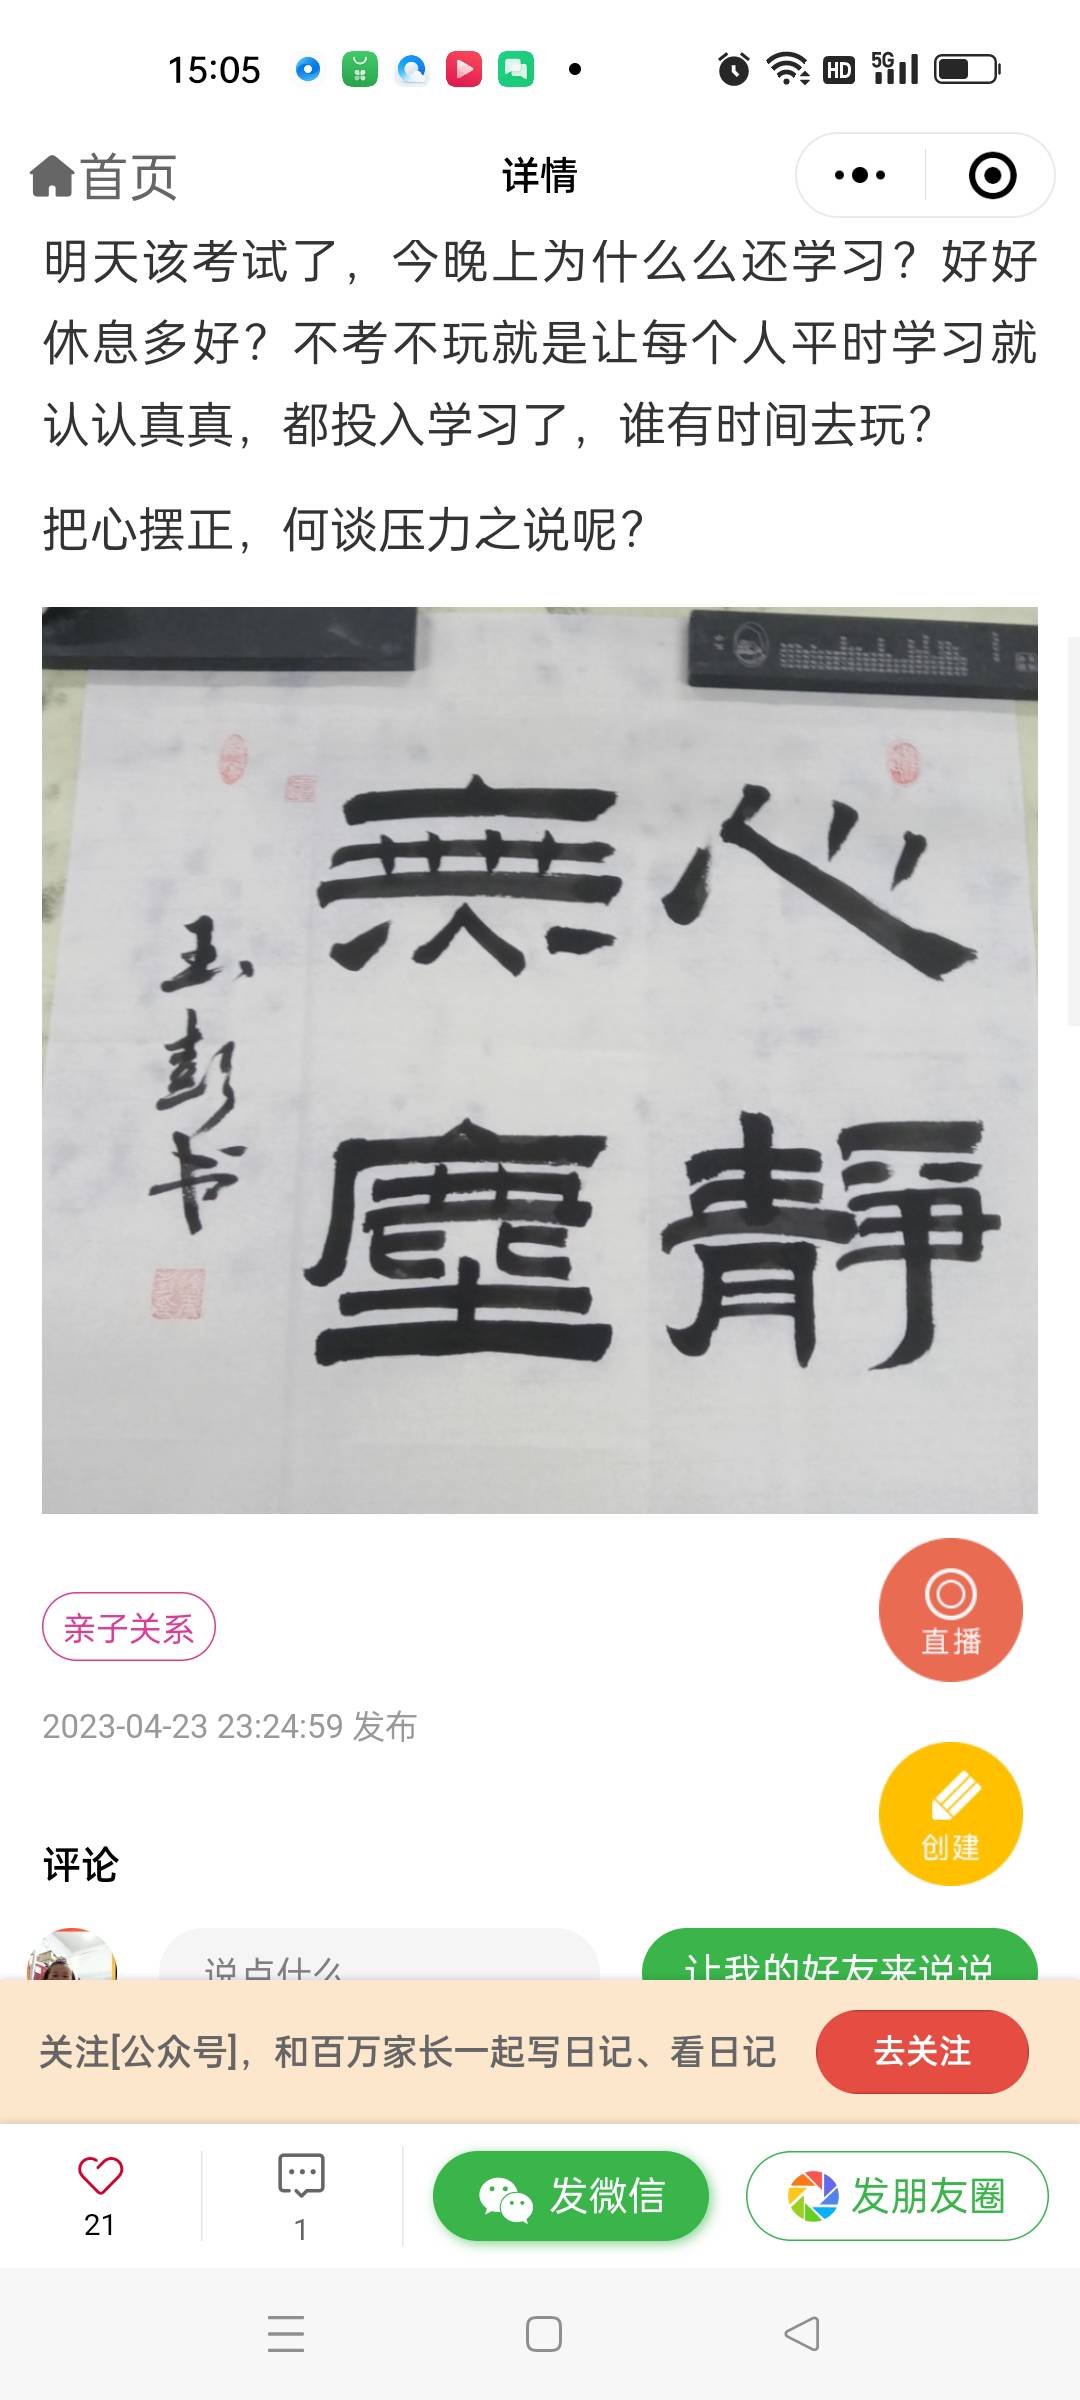 15:05
HD
5G
首页
详情
明天该考试了，今晚上为什么么还学习？好好
休息多好？不考不玩就是让每个人平时学习就
认认真真，都投入学习了，谁有时间去玩？
把心摆正，何谈压力之说呢？
心靜
無塵
玉彭书
亲子关系
直播
2023-04-23 23:24:59 发布
创建
评论
说点什么
让我的好友来说说
关注[公众号]，和百万家长一起写日记、看日记
去关注
21
1
发微信
发朋友圈